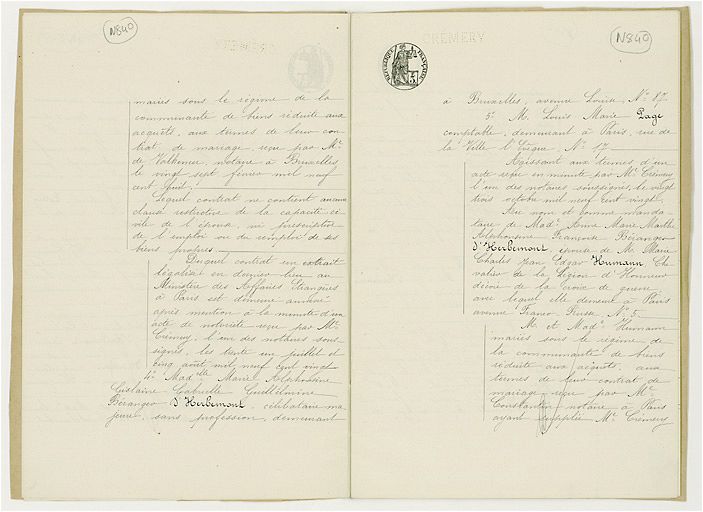 N840
mariés sous le régime de la
communauté de biens réduite aux
acquêts, aux termes de leur con
trat de mariage reçu par Me
de Valkeneer, notaire à Bruxelles,
le vingt sept février mil neuf
cent huit.
Lequel contrat ne contient aucune
clause restrictive de la capacité ci
vile de l'épouse, ni prescription
de l'emploi ou du remploi de ses
biens propres.
Duquel contrat un extrait
légalisé en dernier lieu au
Ministère des Affaires Etrangères
à Paris est demeuré annexé
après mention à la minute d'un
acte de notoriété reçu par Me
Crémery, l'un des notaires sous-
signés, les trente un juillet et
cinq août mil neuf cent vingt
4° Madelle Marie Alphonsine
Gislaine Gabrielle Guillelmine
Béranger d'Herbemont, célibataire ma
jeure, sans profession, demeurant
CRÉMERY
N840
RÉPUBLIQUE FRANÇAISE
à Bruxelles, avenue Louise, No 87.
5° M. Louis Marie Pagé
comptable, demeurant à Paris, rue de
la Ville l'Evêque No 17
Agissant aux termes d'un
acte reçu en minute par Me Crémery
l'un des notaires soussignés, le vingt
trois octobre mil neuf cent vingt.
Au nom et comme manda
taire de Made Anne Marie Marthe
Alphonsine Françoise Béranger
d'Herbemont, épouse de M. Marie
Charles Jean Edgar Humann Che
valier de la Légion d'Honneur
décoré de la croix de guerre,
avec lequel elle demeure à Paris
avenue Franco Russe, No 5.
M. et Made Humann
mariés sous le régime de
la communauté de biens
réduite aux acquêts, aux
termes de leur contrat de
mariage reçu par Me
Constantin notaire à Paris
ayant suppléé Me Crémery